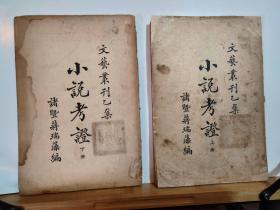 文藝叢刊乙集
小說考證
上册
諸暨蔣瑞藻編
文藝叢刊乙集
小說考證
下册
諸暨蔣瑞藻編